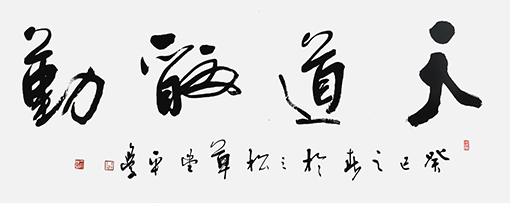 天道酬勤
癸巳之春於松草堂平